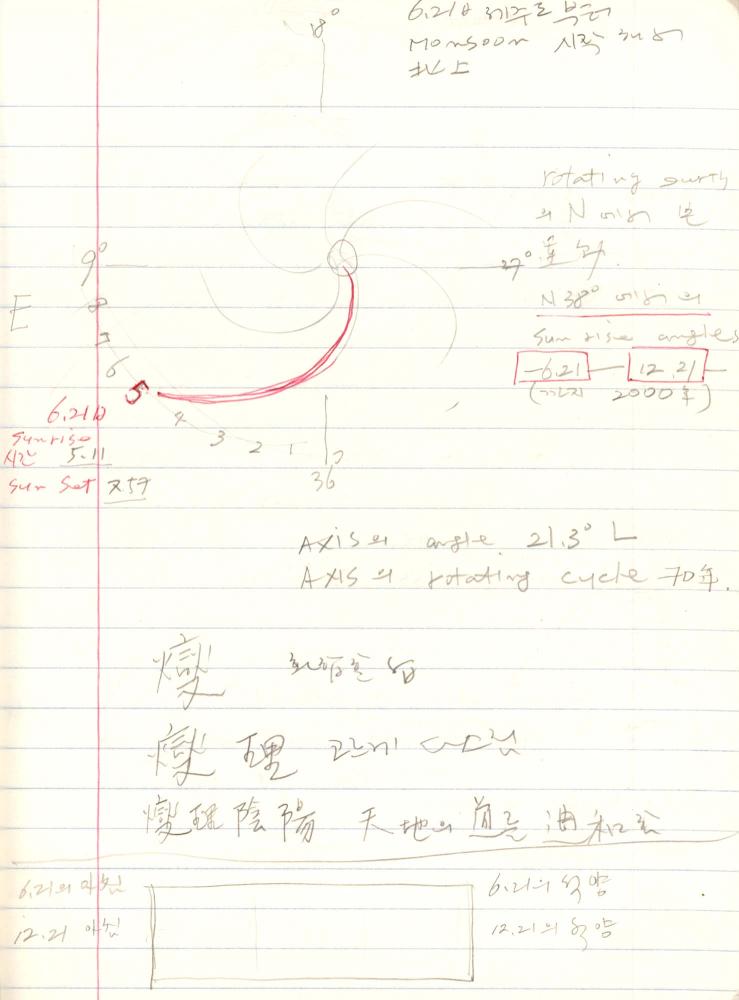 18°
6.21日 제주로부터
Monsoon 시작해서
北上
rotating earth
의 N에서 본
9°
27°
E
8
7
6
5
4
3
2
1
36
N38° 에서의
sun rise angles
-6.21 — 12.21 —
2000年)
6.21日
Sunrise
시간 5.11
Sun Set 7.57
AXIS의 angle 21.3°
AXIS의 rotating cycle 70年.
燮
燮理 고르게 다스림
燮理陰陽 天地의 道를
6.21의 아침
12.21 아침
6.21의 석양
12.21의 석양